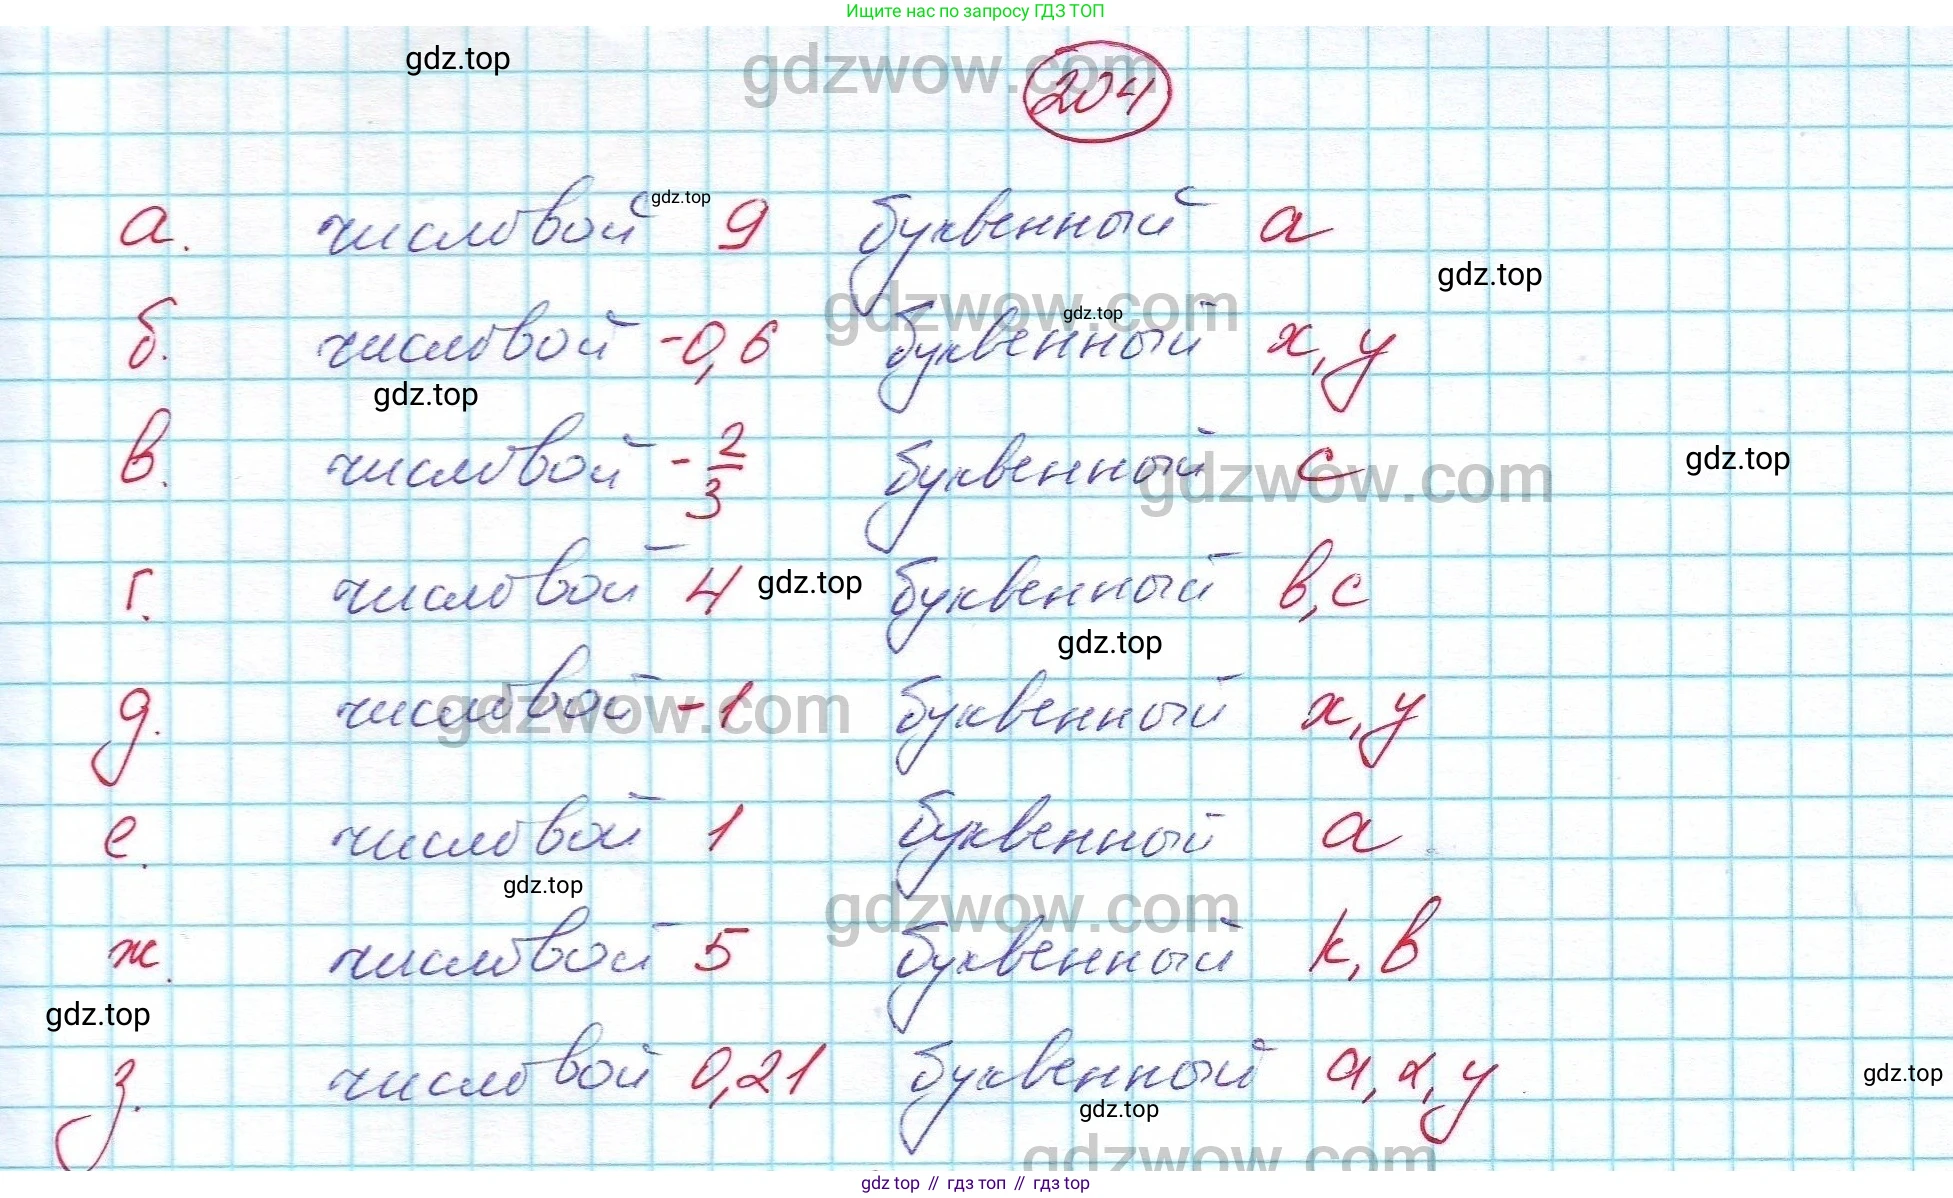 Ищите нас по запросу ГДЗ ТОП
gdz.top gdzwow.com
204
а. числовой 9 буквенный a
gdz.top
gdz.top
б. числовой -0,6 буквенный x, y
gdzwow.com gdz.top
gdz.top
в. числовой -2/3 буквенный c
gdzwow.com gdz.top
г. числовой 4 gdz.top буквенный b, c
gdz.top
д. числовой -1 буквенный x, y
gdzwow.com
е. числовой 1 буквенный a
gdz.top
gdzwow.com
ж. числовой 5 буквенный k, b
gdz.top
з. числовой 0,21 буквенный a, x, y
gdz.top
gdz.top
gdzwow.com
gdz top // гдз топ // гдз top